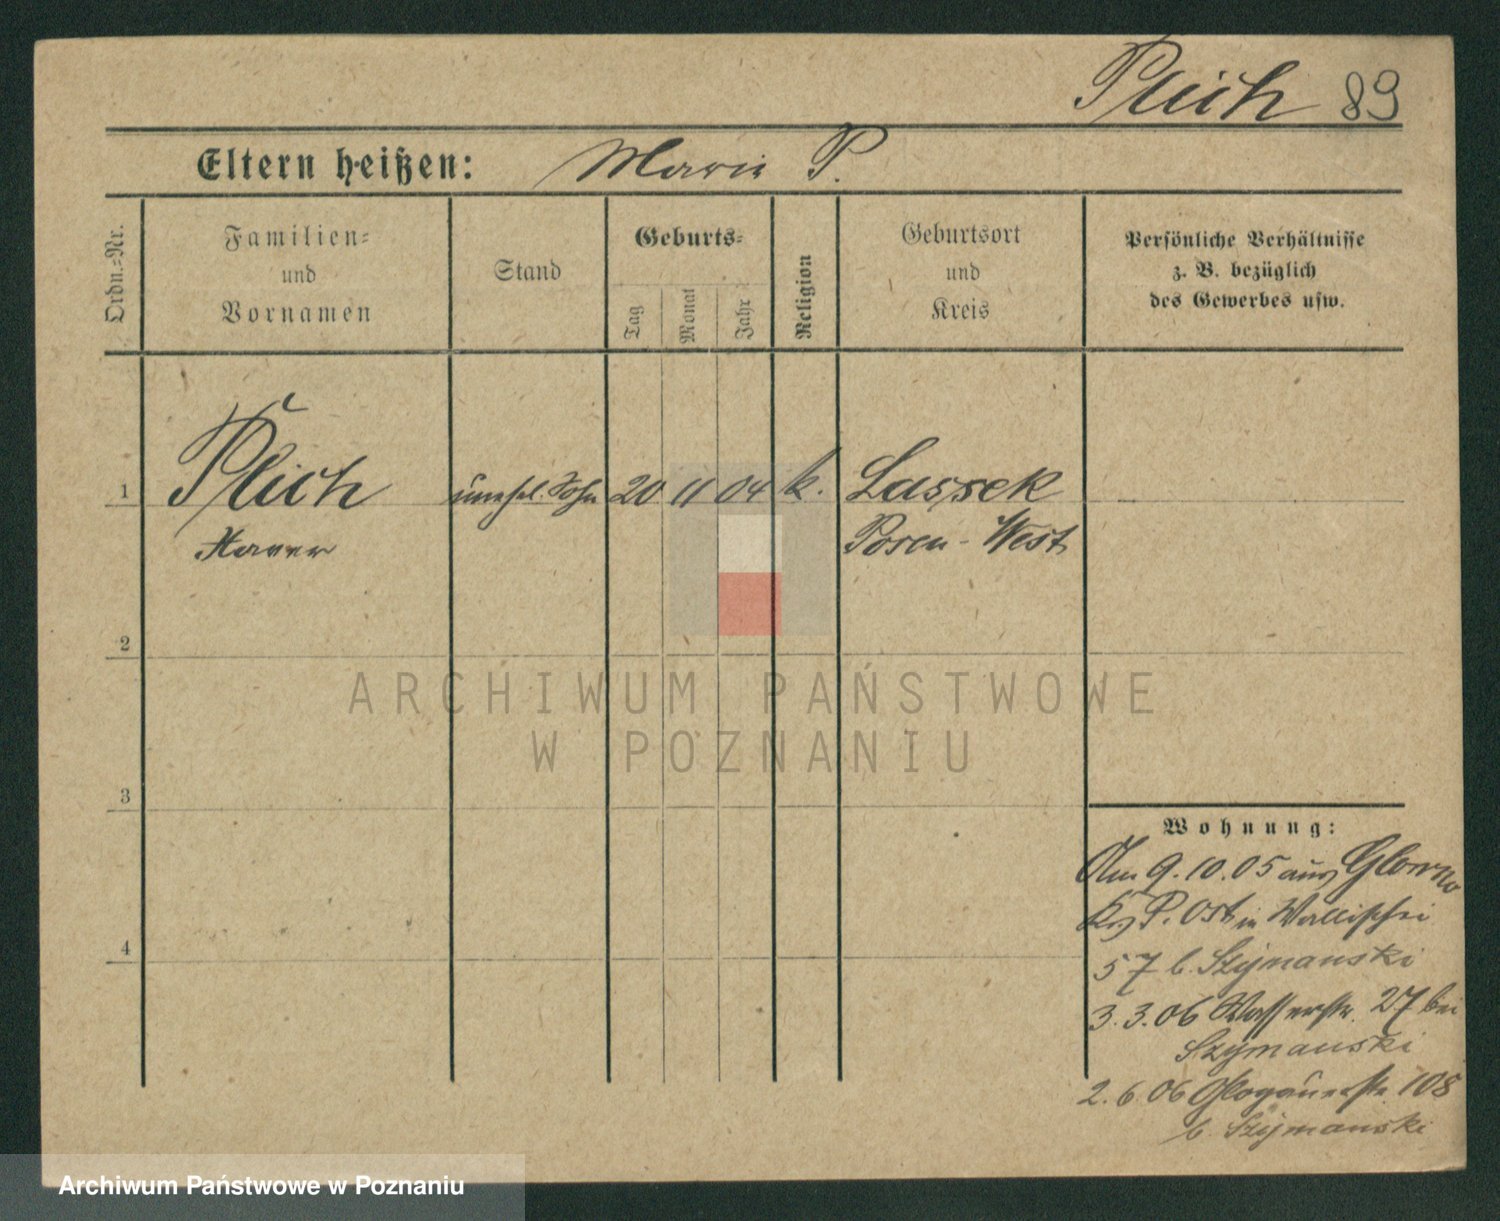 Plich 89
Eltern heißen: Marie P.
Ordn.-Nr.
Familien-
und
Vornamen
Stand
Geburts-
Tag
Monat
Jahr
Religion
Geburtsort
und
Kreis
Persönliche Verhältnisse
z. B. bezüglich
des Gewerbes usw.
1 Plich unehel. Sohn 20 11 04 k. Lassek
Xaver Posen-West
2
3
4
Wohnung:
Am 9.10.05 aus Glowno
Krs P. Ost in Wallischei
57 b. Szymanski
3.3.06 Wasserstr. 27 bei
Szymanski
2.6.06 Glogauerstr. 108
b. Szymanski
ARCHIWUM PAŃSTWOWE
W POZNANIU
Archiwum Państwowe w Poznaniu